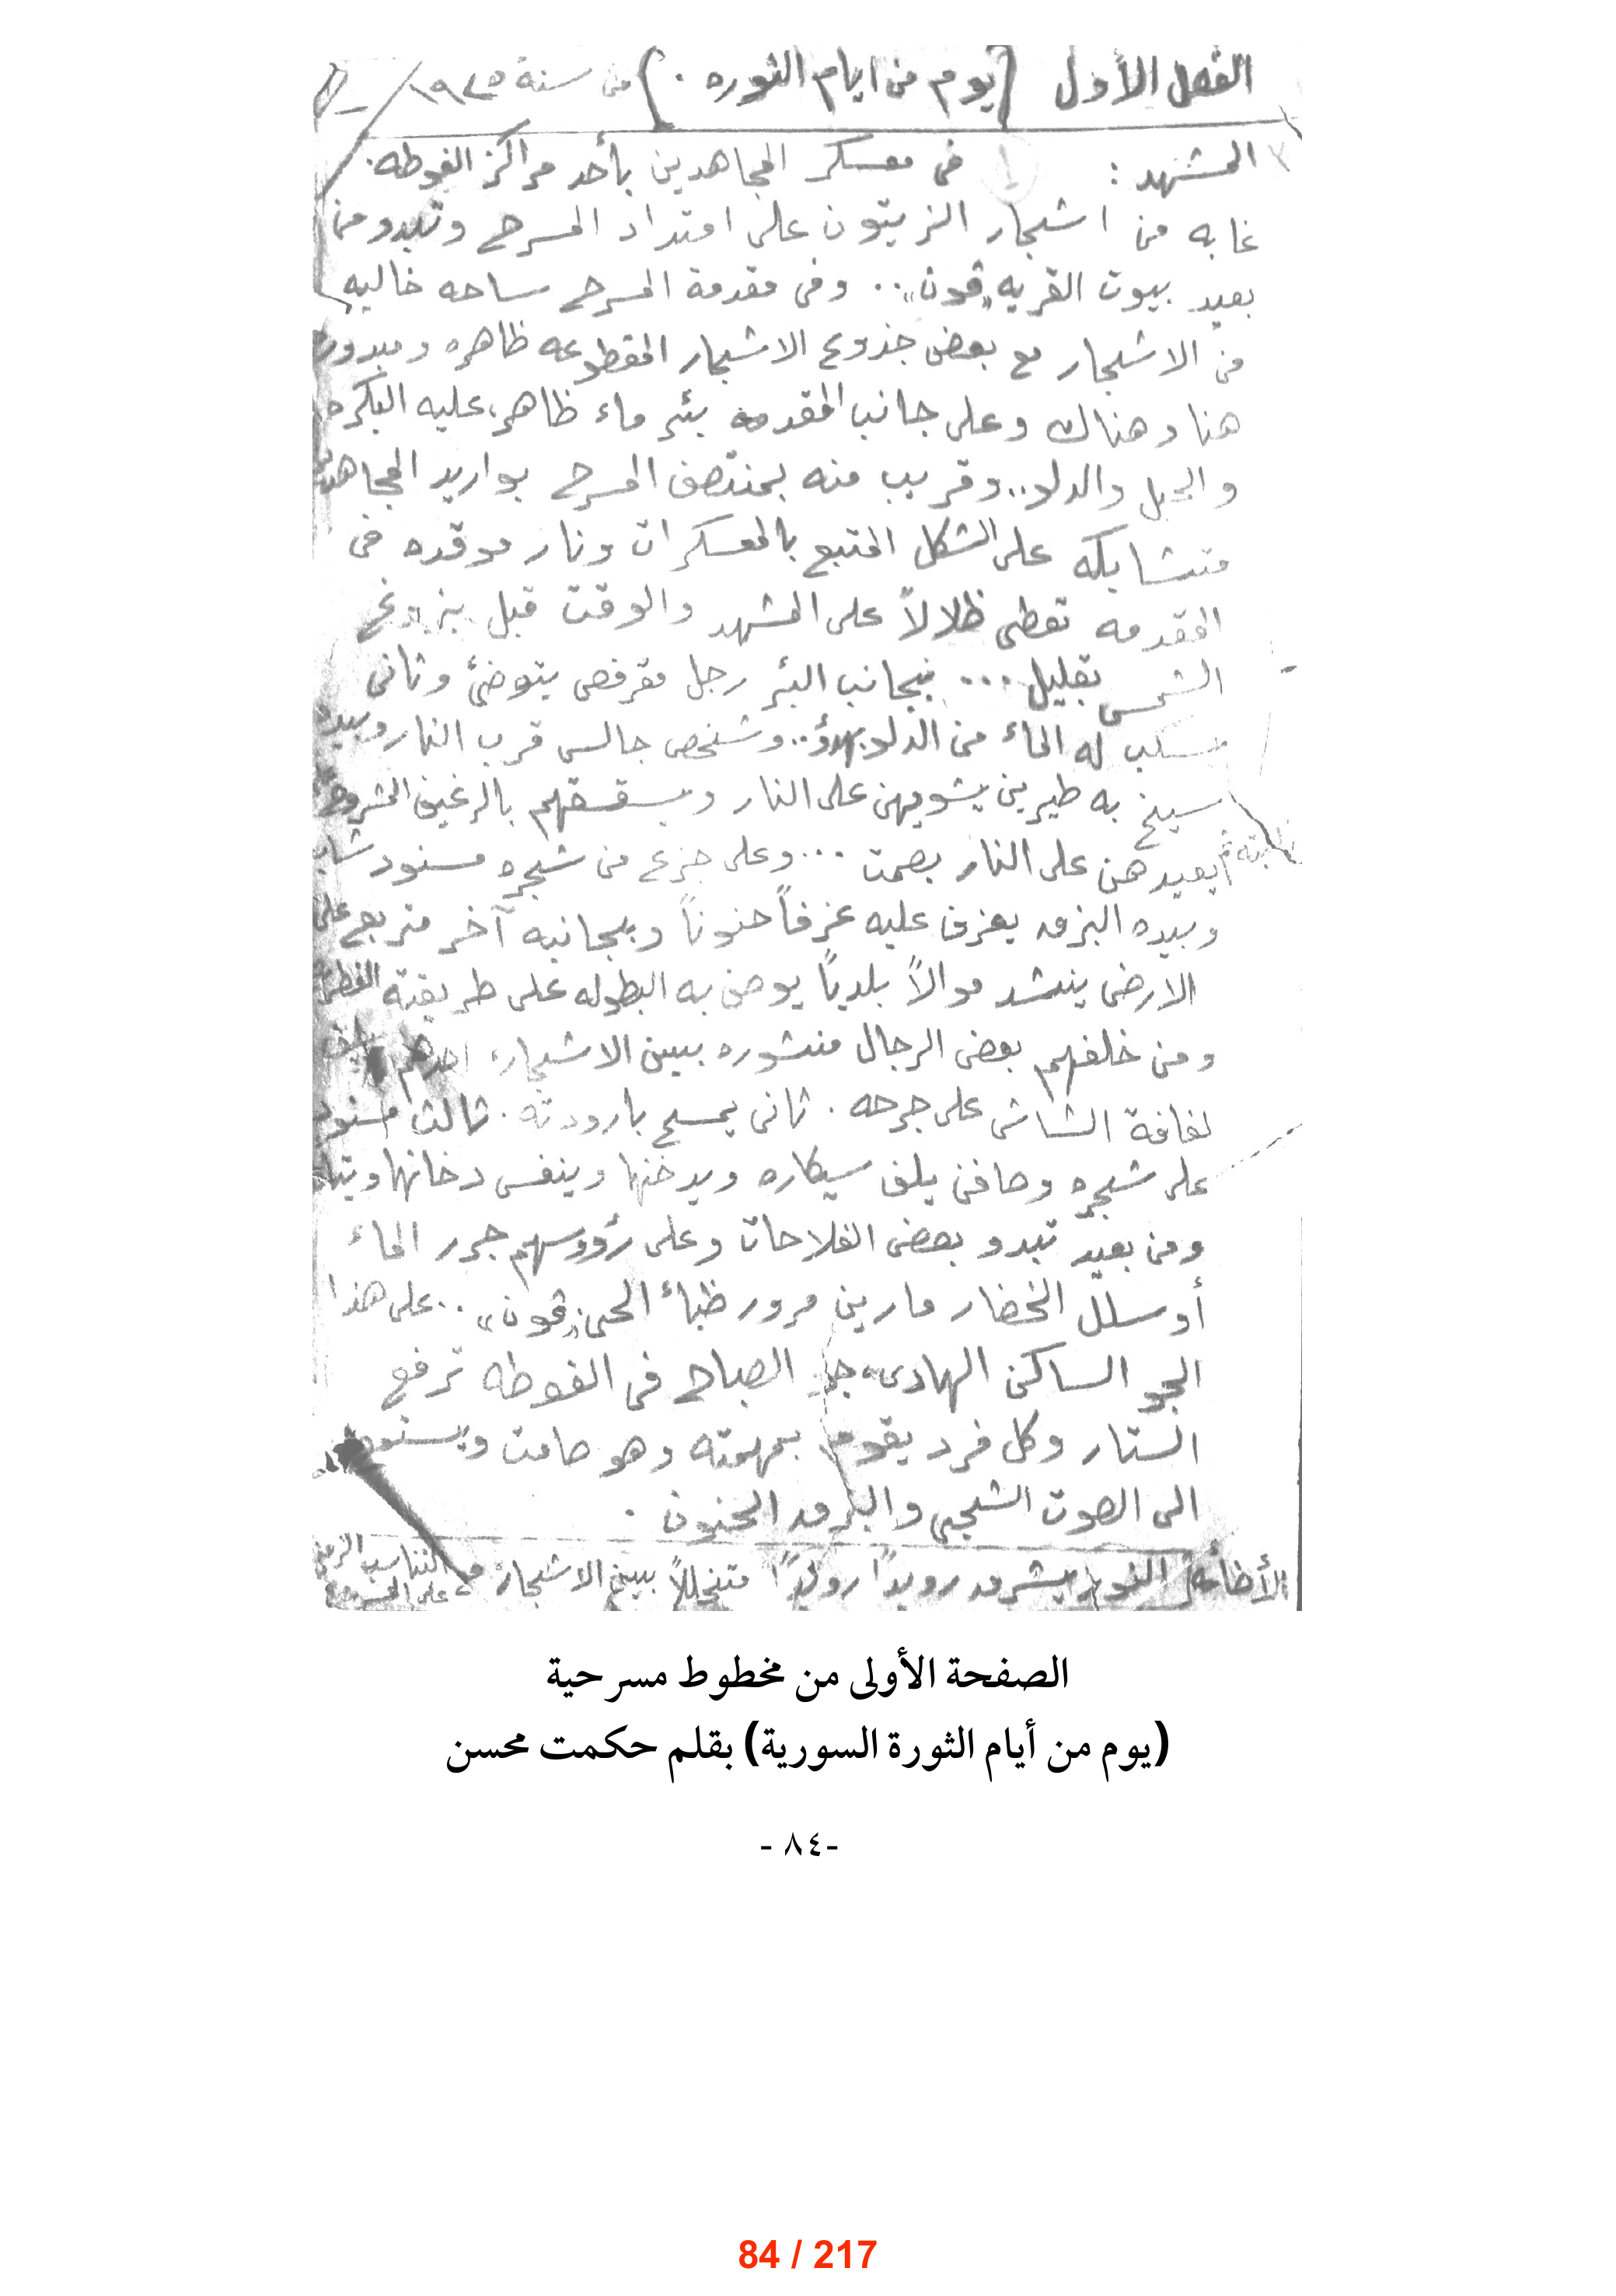 الفصل الأول (يوم من ايام الثوره .) من سنة ١٩٢٥
المشهد : في معسكر المجاهدين بأحد مراكز الغوطه .
غابه من اشجار الزيتون على امتداد المسرح وتبدو من
بعيد بيوت القريه .. وفي مقدمة المسرح ساحه خاليه
من الاشجار مع بعض جذوع الاشجار المقطوعه ظاهره
هنا وهناك وعلى جانب المقدمه بئر ماء ظاهر، عليه البكره
والحبل والدلو .. وقريب منه بمنتصف المسرح بواريد
متشابكه على الشكل المتبع بالمعسكرات ونار موقده في
المقدمه تعطي ظلالاً على المشهد والوقت قبل بزوغ
الشمس بقليل ... بجانب البئر رجل مقرفص يتوضئ وثاني
يسكب له الماء من الدلو بهدؤ .. وشخص جالس قرب النار وبيده
سيخ به طيرين يشويهن على النار ويسقسقهم بالرغيف
يعيدهن على النار بصمت ... وعلى جزع من شجره مسنود شاب
وبيده البزق يعزف عليه عزفاً حنوناً وبجانبه آخر متربع على
الارض ينشد موالاً بلدياً يوصف به البطوله على طريقته
ومن خلفهم بعض الرجال منشوره بين الاشجار، احدهم
لفافة الشاش على جرحه . ثاني يمسح بارودته . ثالث مسنود
على شجره وحافي يلف سيكاره ويدخنها وينفس دخانها
ومن بعيد تبدو بعض الفلاحات وعلى رؤوسهم جرر الماء
أو سلل الخضار مارين مرور ظباء الحي .. على هذا
الجو الساكن الهادئ جو الصباح في الغوطه ترفع
الستار وكل فرد يقوم بمهمته وهو صامت ويستمع
الى الصوت الشجي والبزق الحنون .
الأضاءة النور يشرق رويداً رويداً متخللاً بين الاشجار
الصفحة الأولى من مخطوط مسرحية
(يوم من أيام الثورة السورية) بقلم حكمت محسن
-٨٤ -
84 / 217